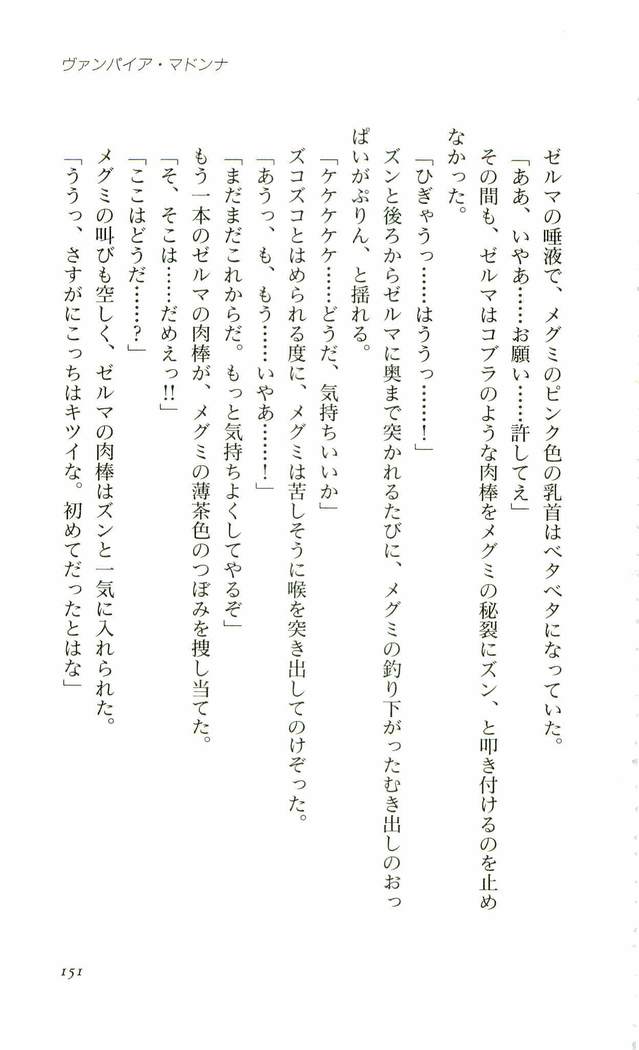 ヴァンパイア・マドンナ
ゼルマの唾液で、メグミのピンク色の乳首はベタベタになっていた。
「ああ、いやあ……お願い……許してえ」
その間も、ゼルマはコブラのような肉棒をメグミの秘裂にズン、と叩き付けるのを止め
なかった。
「ひぎゃうっ……はううっ……!」
ズンと後ろからゼルマに奥まで突かれるたびに、メグミの釣り下がったむき出しのおっ
ぱいがぷりん、と揺れる。
「ケケケケケ……どうだ、気持ちいいか」
ズコズコとはめられる度に、メグミは苦しそうに喉を突き出してのけぞった。
「あうっ、も、もう……いやあ……!」
「まだまだこれからだ。もっと気持ちよくしてやるぞ」
もう一本のゼルマの肉棒が、メグミの薄茶色のつぼみを捜し当てた。
「そ、そこは……だめえっ!!」
「ここはどうだ……?」
メグミの叫びも空しく、ゼルマの肉棒はズンと一気に入れられた。
「ううっ、さすがにこっちはキツイな。初めてだったとはな」
151